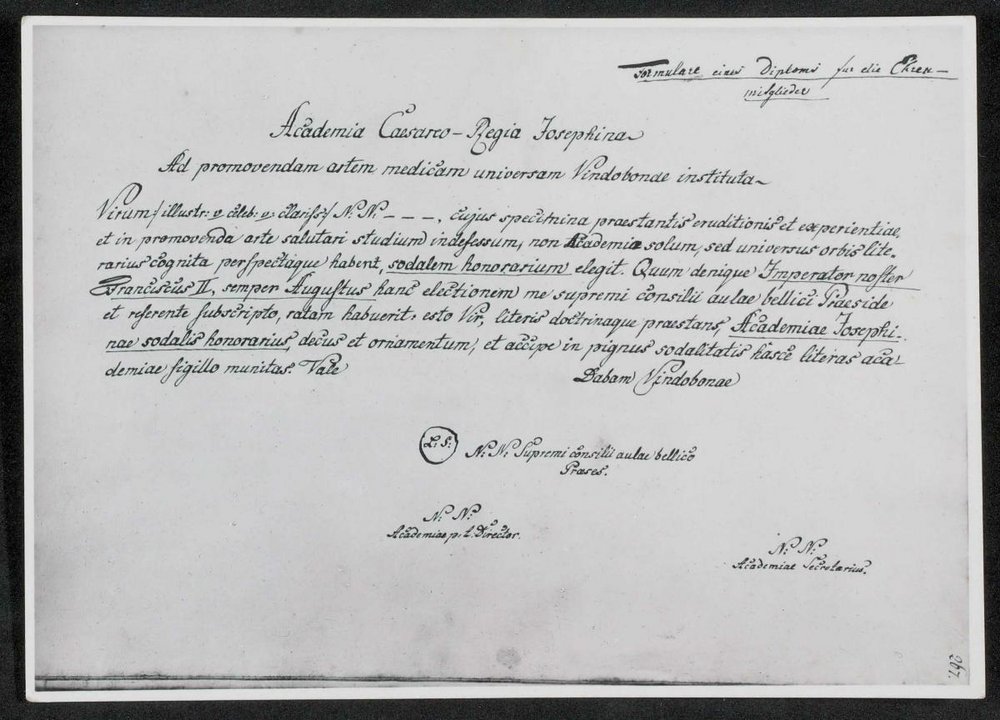 Formulare eines Diploms fur die Ehren-
mitglieder
Academia Caesareo-Regia Josephina
Ad promovendam artem medicam universam Vindobonae instituta
Virum /illustr: v. celeb: v: clariss:/ N: N: - - - , cujus specimina praestantis eruditionis et experientiae,
et in promovenda arte salutari studium indefessum, non Academia solum, sed universus orbis lite-
rarius cognita perspectaque habent, sodalem honorarium elegit. Quum denique Imperator noster
Franciscus II, semper Augustus hanc electionem me supremi consilii aulae bellici Praeside
et referente subscripto, ratam habuerit: esto Vir, literis doctrinaque praestans, Academiae Josephi-
nae sodalis honorarius, decus et ornamentum, et accipe in pignus sodalitatis hasce literas aca-
demiae sigillo munitas. Vale
Dabam Vindobonae
L: S:
N: N: Supremi consilii aulae bellico
Praeses.
N: N:
Academiae p: t. Director.
N: N:
Academiae Secretarius.
267.